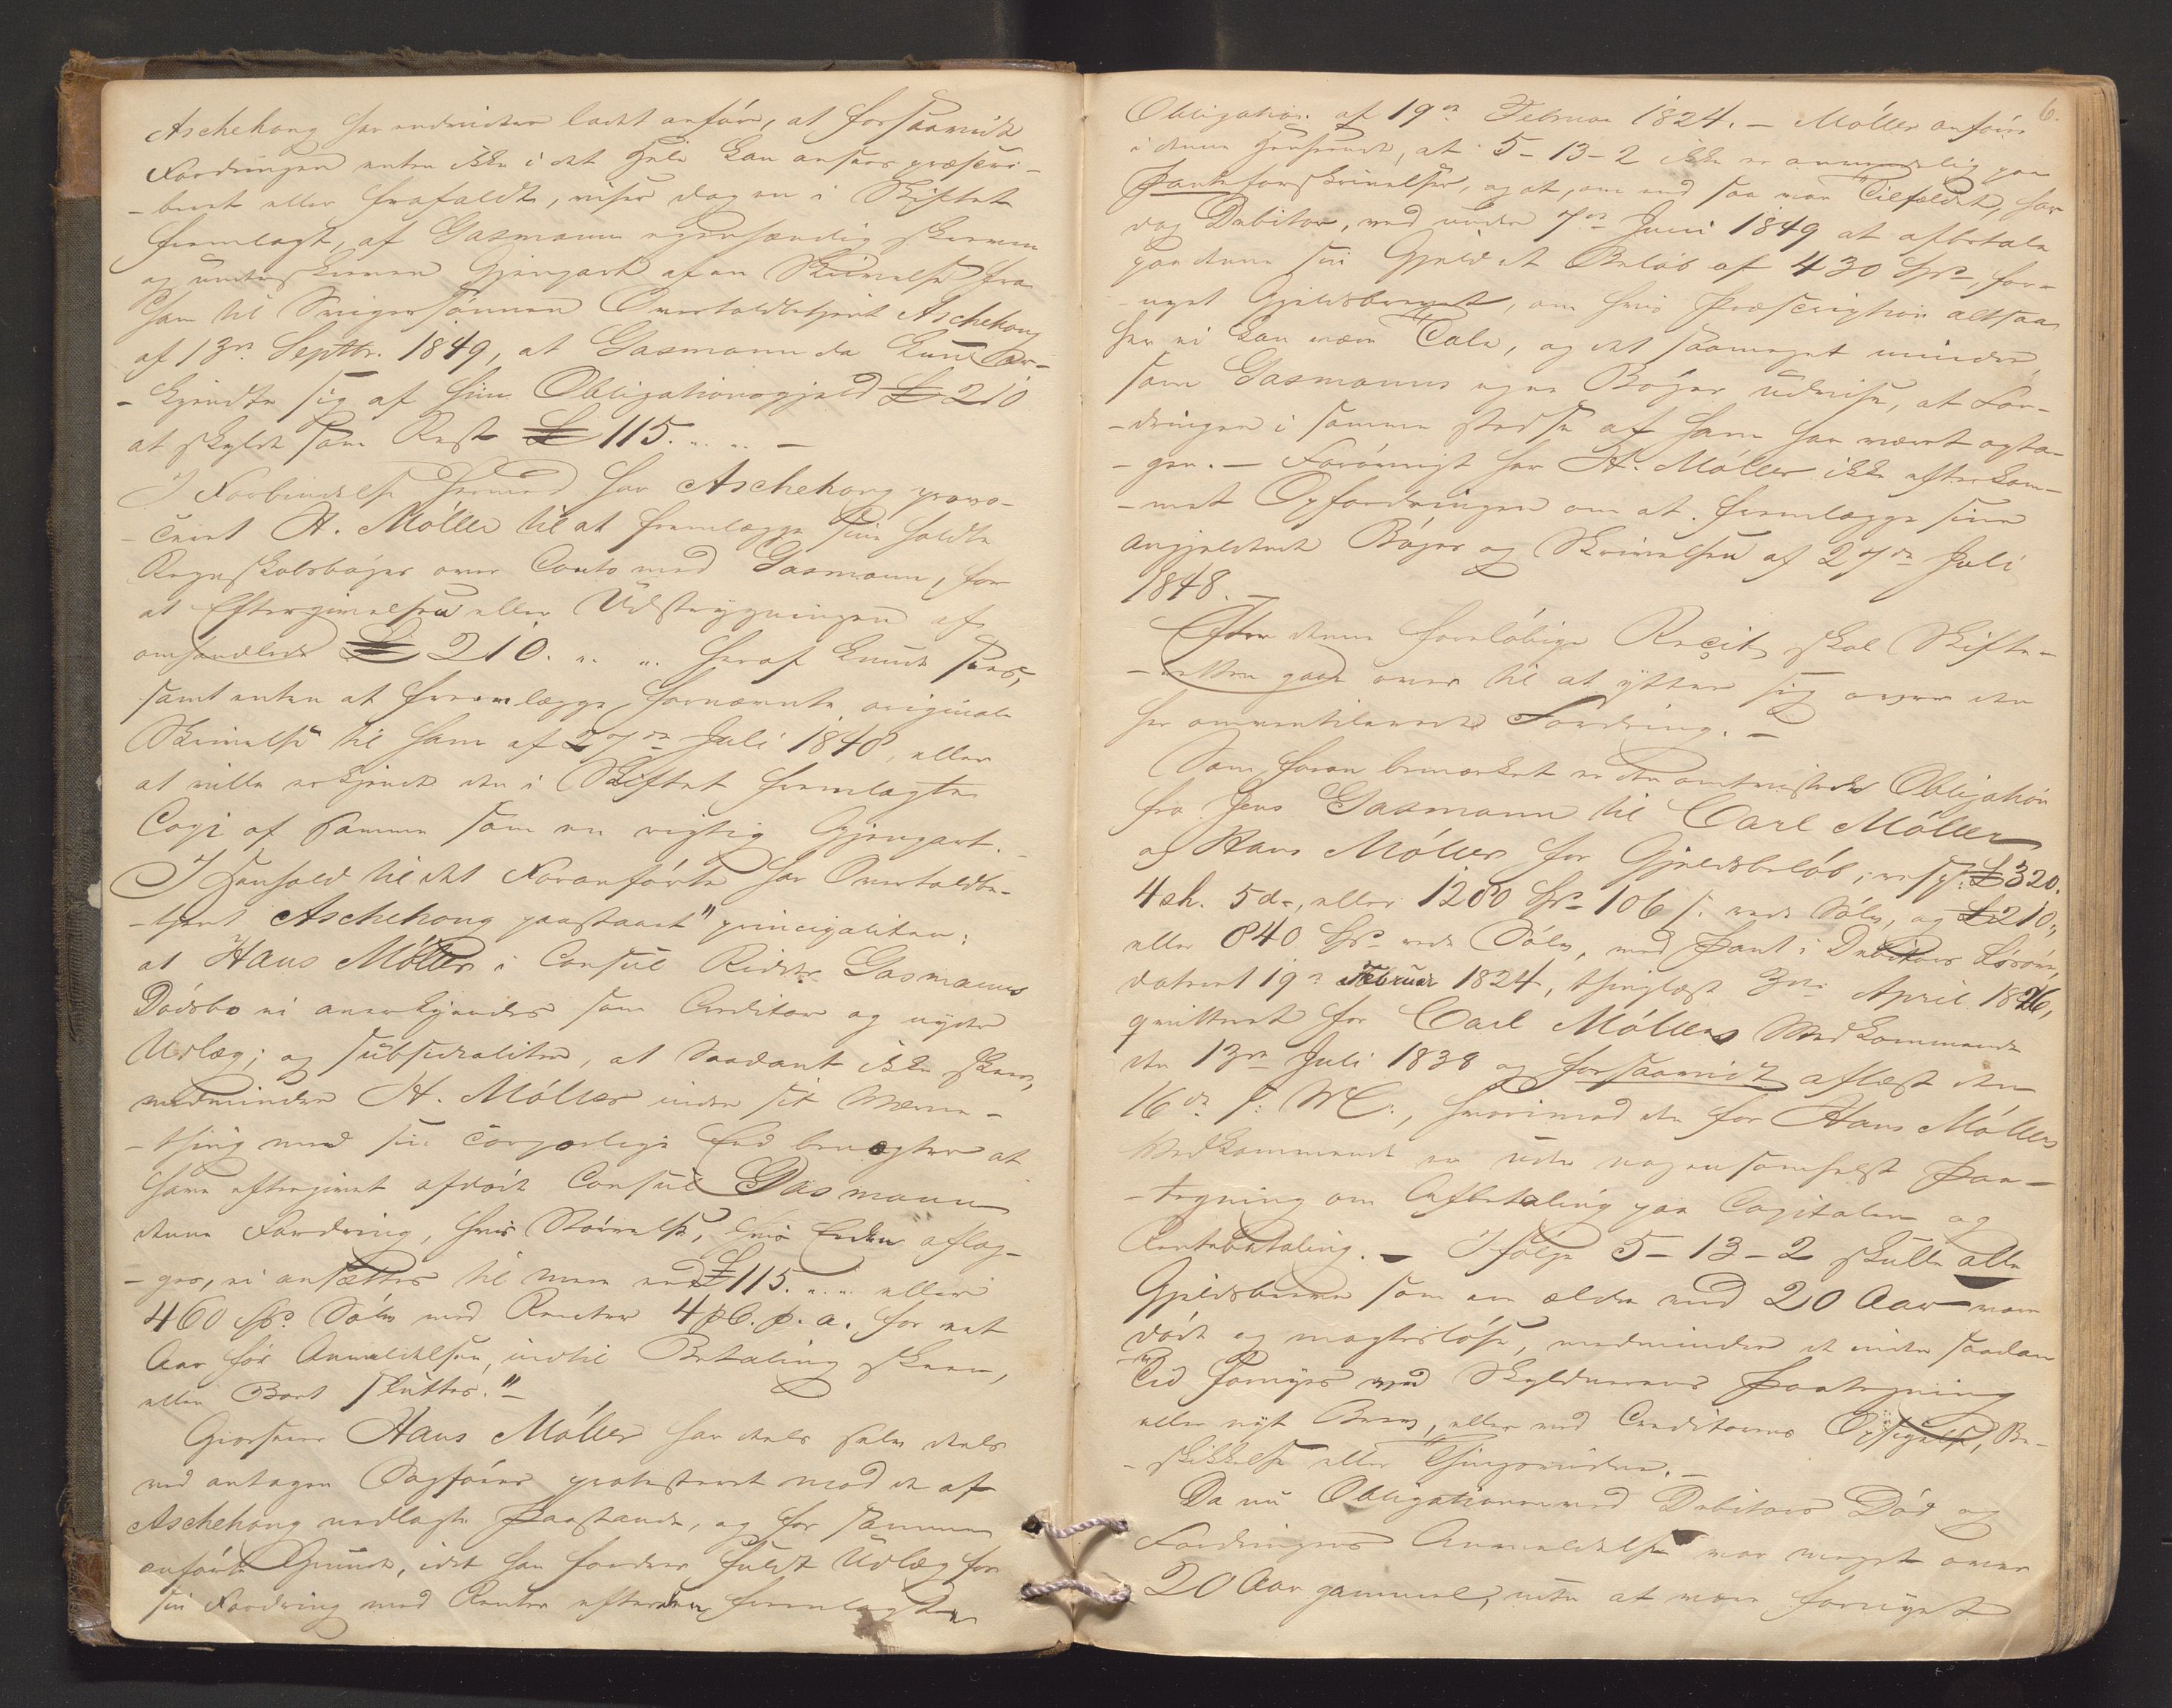 Aschehoug har endvidere ladet anføre, at forsaavidt
Fordringen enten ikke i det Hele kan ansees præscri-
-beret eller frafaldt, viser dog en i Skiftet
fremlagt, af Gasmann egenhændig skreven
og underskreven Gjenpart af en Skrivelse fra
ham til Svigersønnen Overtoldbetjent Aschehoug
af 13de Septbr. 1849, at Gasmann da kun ver-
-kjendte sig af hiin Obligationsgjæld £ 210
at skylde som Rest £ 115. " " –
I Forbindelse hermed har Aschehoug provo-
-ceret H. Møller til at fremlægge sine holdte
Regnskabsbøger over Conto med Gasmann, for
at Eftergivelsen eller Udstrygningen af
omhandlede £ 210. " " heraf kunde sees,
samt enten at fremlægge fornævnte originale
Skrivelse til ham af 27de Juli 1848, eller
at ville erkjende den i Skiftet fremlagte
Copi af samme som en rigtig Gjenpart.
I Henhold til det Foranførte har Overtoldbe-
-tjent Aschehoug paastaaet "principaliter:
at Hans Møller i Consul Ridder Gasmanns
Dødsbo ei anerkjendes som Creditor og nyder
Udlæg; og subsidialiter, at Saadant ikke skeer,
medmindre H. Møller inden sit Værne-
-thing med sin corporlige Eed benegter at
have eftergivet afdøde Consul Gasmann
denne Fordring, hvis Størrelse, hvis Eeden aflæg-
-ges, ei ansættes til mere end £ 115. " " eller
460 Spd. Sølv med Renter 4 pC. p. a. for eet
Aar før Anmeldelsen, indtil Betaling skeer,
eller Boet sluttes." –
Grosserer Hans Møller har deels selv deels
ved antagen Sagfører protesteret mod de af
Aschehoug nedlagte Paastande, og for samme
anførte Grunde, idet han fordrer fuldt Udlæg for
sin Fordring med Renter efter den fremlagte
6.
Obligation af 19de Februar 1824. – Møller anfører
i denne Henseende, at 5-13-2 ikke er anvendelig paa
Panteforskrivelser, og at, om end saa var Tilfældet, har
dog Debitor, ved under 7de Juni 1849 at afbetale
paa denne sin Gjæld et Beløb af 430 Spd., for-
-nyet Gjældsbrevet, om hvis Præscription altsaa
her ei kan være Tale, og det saameget mindre,
som Gasmanns egne Bøger udvise, at For-
-dringen i samme stedse af ham har været opta-
-gen. – Forøvrigt har H. Møller ikke efterkom-
-met Opfordringen om at fremlægge sine
angjældende Bøger og Skrivelsen af 27de Juli
1848. –
Efter denne foreløbige Recit, skal Skifte-
-retten gaae over til at yttre sig over den
her omventilerede Fordring. –
Som foran bemærket er den omtvistede Obligation
fra Jens Gasmann til Carl Møller
og Hans Møller for Gjældsbeløb, resp: £ 320.
4 sh. 5 d., eller 1280 Spd. 106 s. rede Sølv, og £ 210.,
eller 840 Spd. rede Sølv, med Pant i Debitors Løsøre,
dateret 19de Februar 1824, thinglæst 3die April 1826,
qvitteret for Carl Møllers Vedkommende
den 13de Juli 1838 og forsaavidt aflæst den
16de s: M:, hvorimod den for Hans Møllers
Vedkommende er uden nogensomhelst Paa-
-tegning om Afbetaling paa Capitalen og
Rentebetaling. – Ifølge 5-13-2 skulle alle
Gjældsbreve som ere ældre end 20 Aar være
døde og magtesløse, medmindre de inden saadan
Tid fornyes ved Skyldnerens Paategning
eller nyt Brev, eller ved Creditorens Opsigelse, Be-
-skikkelse eller Thingsvidne. –
Da nu Obligationen ved Debitors Død og
Fordringens Anmeldelse var meget over
20 Aar gammel, uden at være fornyet